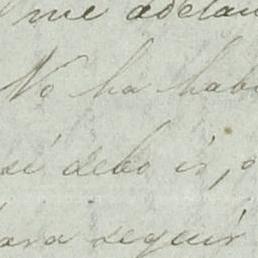 me adelan
No ha habi
sé debo ir, o
para seguir